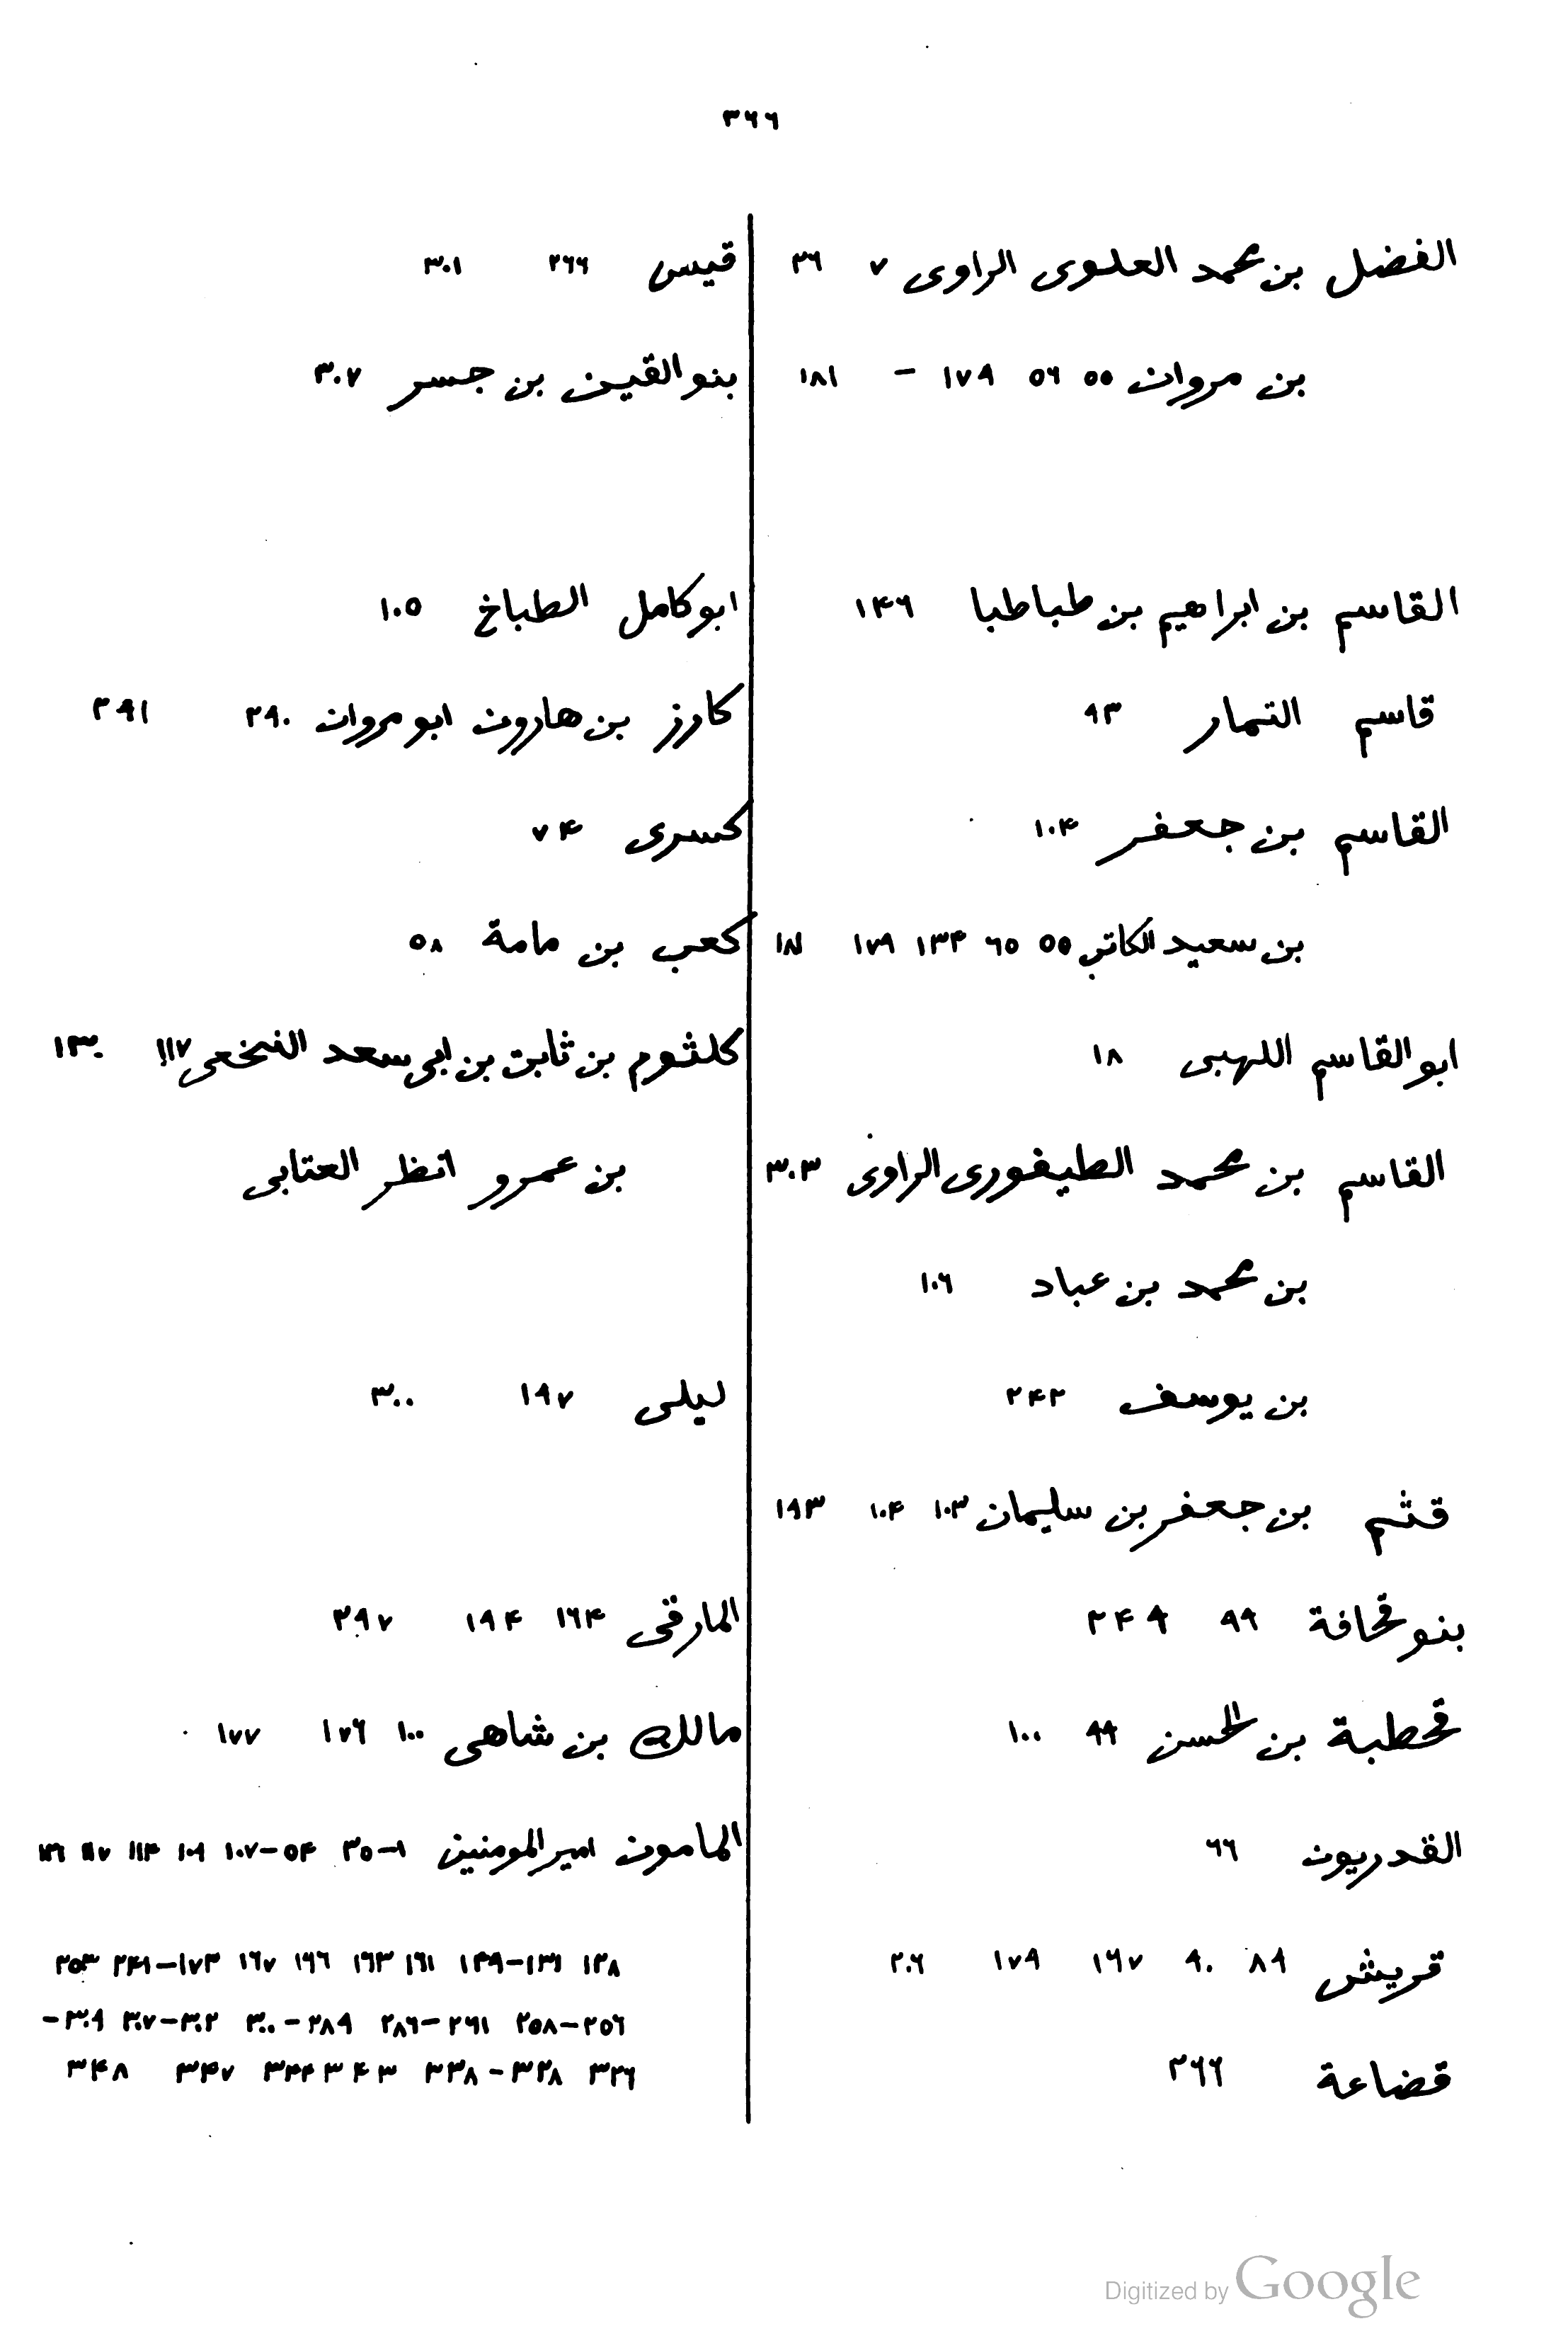 ٣٦٦
الفضل بن محمد العلوى الراوى ٧ ٣٦
بن مروان ٥٥ ٥٦ ١٧٩ - ١٨١
القاسم بن ابراهيم بن طباطبا ١۴٦
قاسم التمار ٩٣
القاسم بن جعفر ١٠۴
بن سعيد الكاتب ٥٥ ٦٥ ١٣۴ ١٧٩
ابو القاسم اللهبى ١٨
القاسم بن محمد الطيفورى الراوى ٣٠٣
بن محمد بن عباد ١٠٦
بن يوسف ٢۴٢
قثم بن جعفر بن سليمان ١٠٣ ١٠۴ ١٩٣
بنو قحافة ٩٩ ٢۴٩
قحطبة بن الحسن ٩٩ ١٠٠
القدريون ٦٦
قريش ٨٩ ٩٠ ١٦٧ ١٧٩ ٢٠٦
قضاعة ٢٦٦
قيس ٢٦٦ ٣٠١
بنو القين بن جسر ٣٠٧
ابو كامل الطباخ ١٠٥
كارز بن هارون ابو مروان ٢٩٠ ٢٩١
كسرى ٧۴
كعب بن مامة ٥٨
كلثوم بن ثابت بن ابى سعد النخعى ١١٧ ١٣٠
بن عمرو انظر العتابى
ليلى ١٩٧ ٣٠٠
المارقى ١٦۴ ١٩۴ ٢٩٧
مالك بن شاهى ١٠٠ ١٧٦ ١٧٧
المامون امير المومنين ١-٣٥ ٥۴-١٠٧ ١٠٩ ١١۴ ١١٧
١٢٨ ١٣٦-١۴٩ ١٦١ ١٦٣ ١٦٦ ١٦٧ ١٧٣-٢۴١ ٢٥٣
٢٥٦-٢٥٨ ٢٦١-٢٨٦ ٢٨٩-٣٠٠ ٣٠٢-٣٠٧ ٣٠٩-
٣٢٦ ٣٢٨-٣٣٨ ٣۴٣ ٣۴۴ ٣۴٧ ٣۴٨
Digitized by Google